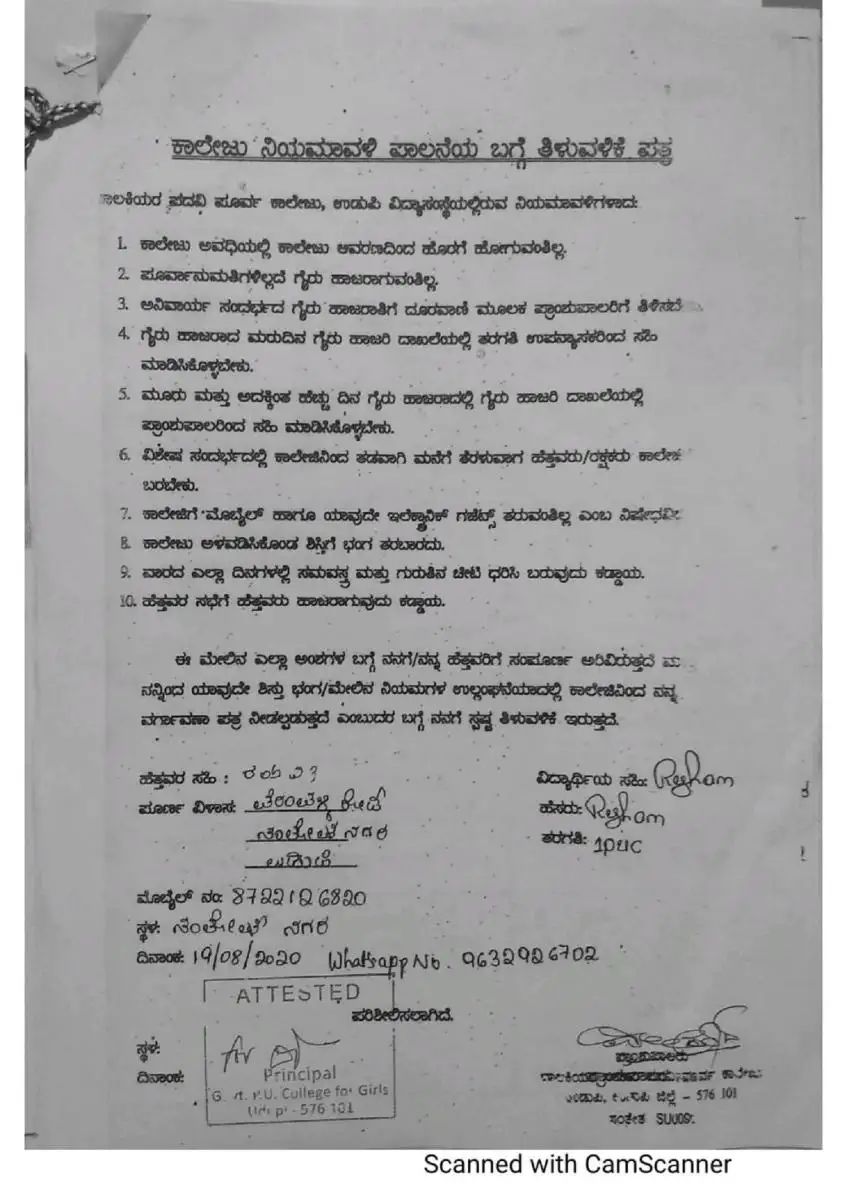 ಕಾಲೇಜು ನಿಯಮಾವಳಿ ಪಾಲನೆಯ ಬಗ್ಗೆ ತಿಳುವಳಿಕೆ ಪತ್ರ
ಾಲಕಿಯರ ಪದವಿ ಪೂರ್ವ ಕಾಲೇಜು, ಉಡುಪಿ ವಿದ್ಯಾಸಂಸ್ಥೆಯಲ್ಲಿರುವ ನಿಯಮಾವಳಿಗಳಾದ:
1. ಕಾಲೇಜು ಅವಧಿಯಲ್ಲಿ ಕಾಲೇಜು ಆವರಣದಿಂದ ಹೊರಗೆ ಹೋಗುವಂತಿಲ್ಲ.
2. ಪೂರ್ವಾನುಮತಿಗಳಿಲ್ಲದೆ ಗೈರು ಹಾಜರಾಗುವಂತಿಲ್ಲ.
3. ಅನಿವಾರ್ಯ ಸಂದರ್ಭದ ಗೈರು ಹಾಜರಾತಿಗೆ ದೂರವಾಣಿ ಮೂಲಕ ಪ್ರಾಂಶುಪಾಲರಿಗೆ ತಿಳಿಸಬೆ
4. ಗೈರು ಹಾಜರಾದ ಮರುದಿನ ಗೈರು ಹಾಜರಿ ದಾಖಲೆಯಲ್ಲಿ ತರಗತಿ ಉಪನ್ಯಾಸಕರಿಂದ ಸಹಿ
ಮಾಡಿಸಿಕೊಳ್ಳಬೇಕು.
5. ಮೂರು ಮತ್ತು ಅದಕ್ಕಿಂತ ಹೆಚ್ಚು ದಿನ ಗೈರು ಹಾಜರಾದಲ್ಲಿ ಗೈರು ಹಾಜರಿ ದಾಖಲೆಯಲ್ಲಿ
ಪ್ರಾಂಶುಪಾಲರಿಂದ ಸಹಿ ಮಾಡಿಸಿಕೊಳ್ಳಬೇಕು.
6. ವಿಶೇಷ ಸಂದರ್ಭದಲ್ಲಿ ಕಾಲೇಜಿನಿಂದ ತಡವಾಗಿ ಮನೆಗೆ ತೆರಳುವಾಗ ಹೆತ್ತವರು/ರಕ್ಷಕರು ಕಾಲೇಜ
ಬರಬೇಕು.
7. ಕಾಲೇಜಿಗೆ ಮೊಬೈಲ್ ಹಾಗೂ ಯಾವುದೇ ಇಲೆಕ್ಟ್ರಾನಿಕ್ ಗಜೆಟ್ಸ್ ತರುವಂತಿಲ್ಲ ಎಂಬ ನಿಷೇಧವಿ
8. ಕಾಲೇಜು ಅಳವಡಿಸಿಕೊಂಡ ಶಿಸ್ತಿಗೆ ಭಂಗ ತರಬಾರದು.
9. ವಾರದ ಎಲ್ಲಾ ದಿನಗಳಲ್ಲಿ ಸಮವಸ್ತ್ರ ಮತ್ತು ಗುರುತಿನ ಚೀಟಿ ಧರಿಸಿ ಬರುವುದು ಕಡ್ಡಾಯ.
10. ಹೆತ್ತವರ ಸಭೆಗೆ ಹೆತ್ತವರು ಹಾಜರಾಗುವುದು ಕಡ್ಡಾಯ.
ಈ ಮೇಲಿನ ಎಲ್ಲಾ ಅಂಶಗಳ ಬಗ್ಗೆ ನನಗೆ/ನನ್ನ ಹೆತ್ತವರಿಗೆ ಸಂಪೂರ್ಣ ಅರಿವಿರುತ್ತದೆ ಮ
ನನ್ನಿಂದ ಯಾವುದೇ ಶಿಸ್ತು ಭಂಗ/ಮೇಲಿನ ನಿಯಮಗಳ ಉಲ್ಲಂಘನೆಯಾದಲ್ಲಿ ಕಾಲೇಜಿನಿಂದ ನನ್ನ
ವರ್ಗಾವಣಾ ಪತ್ರ ನೀಡಲ್ಪಡುತ್ತದೆ ಎಂಬುದರ ಬಗ್ಗೆ ನನಗೆ ಸ್ಪಷ್ಟ ತಿಳುವಳಿಕೆ ಇರುತ್ತದೆ.
ಹೆತ್ತವರ ಸಹಿ :
ವಿದ್ಯಾರ್ಥಿಯ ಸಹಿ: Resham
ಪೂರ್ಣ ವಿಳಾಸ:
ಹೆಸರು: Resham
ನಗರ
ತರಗತಿ: 1PUC
ಉಡುಪಿ
ಮೊಬೈಲ್ ನಂ: 8722126820
ಸ್ಥಳ: ನಗರ
ದಿನಾಂಕ: 19/08/2020 Whatsapp No. 9632926702
ATTESTED
ಪರಿಶೀಲಿಸಲಾಗಿದೆ.
ಸ್ಥಳ:
ದಿನಾಂಕ:
Principal
G t. P.U. College for Girls
Udupi - 576 101
ಪ್ರಾಂಶುಪಾಲರು
ಕಾಲೇಜು
ಉಡುಪಿ, ಜಿಲ್ಲೆ - 576 101
ಸಂಕೇತ SU009.
Scanned with CamScanner